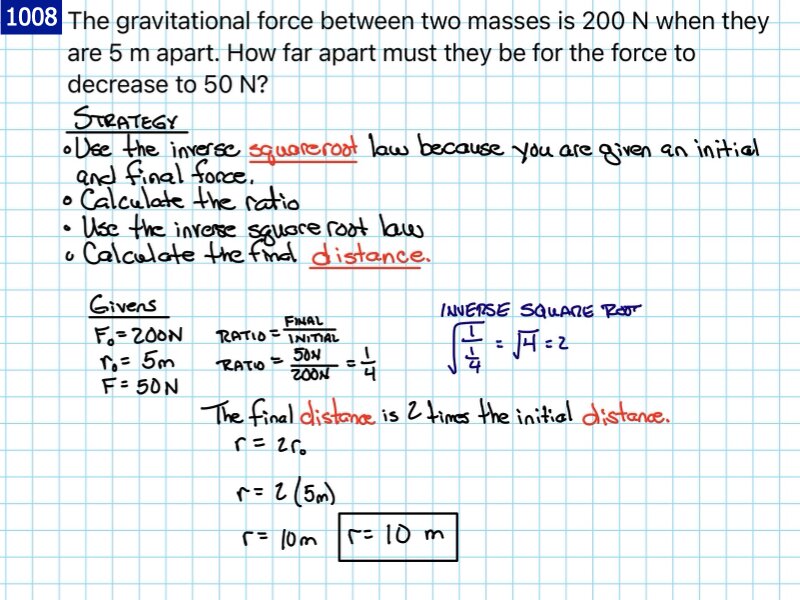 1008 The gravitational force between two masses is 200 N when they
are 5 m apart. How far apart must they be for the force to
decrease to 50 N?
STRATEGY
• Use the inverse square root law because you are given an initial
and final force.
• Calculate the ratio
• Use the inverse square root law
• Calculate the final distance.
Givens
F₀ = 200N
r₀ = 5m
F = 50N
RATIO = FINAL / INITIAL
RATIO = 50N / 200N = 1/4
INVERSE SQUARE ROOT
√(1 / (1/4)) = √4 = 2
The final distance is 2 times the initial distance.
r = 2r₀
r = 2 (5m)
r = 10m
r = 10 m